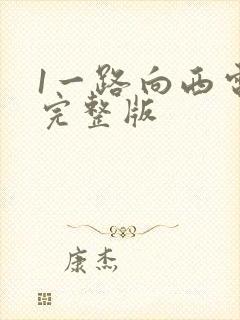 1一路向西电
完整版
康杰